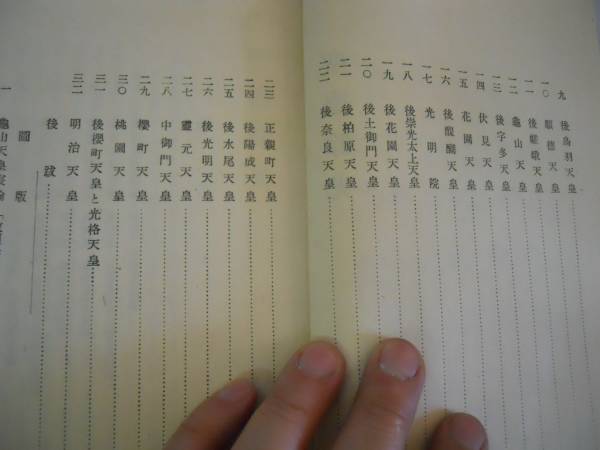 九 後鳥羽天皇
一〇 順德天皇
一一 後嵯峨天皇
一二 龜山天皇
一三 後宇多天皇
一四 伏見天皇
一五 花園天皇
一六 後醍醐天皇
一七 光明院
一八 後崇光太上天皇
一九 後花園天皇
二〇 後土御門天皇
二一 後柏原天皇
二二 後奈良天皇
二三 正親町天皇
二四 後陽成天皇
二五 後水尾天皇
二六 後光明天皇
二七 靈元天皇
二八 中御門天皇
二九 櫻町天皇
三〇 桃園天皇
三一 後櫻町天皇と光格天皇
三二 明治天皇
後跋
圖版
一 龜山天皇宸